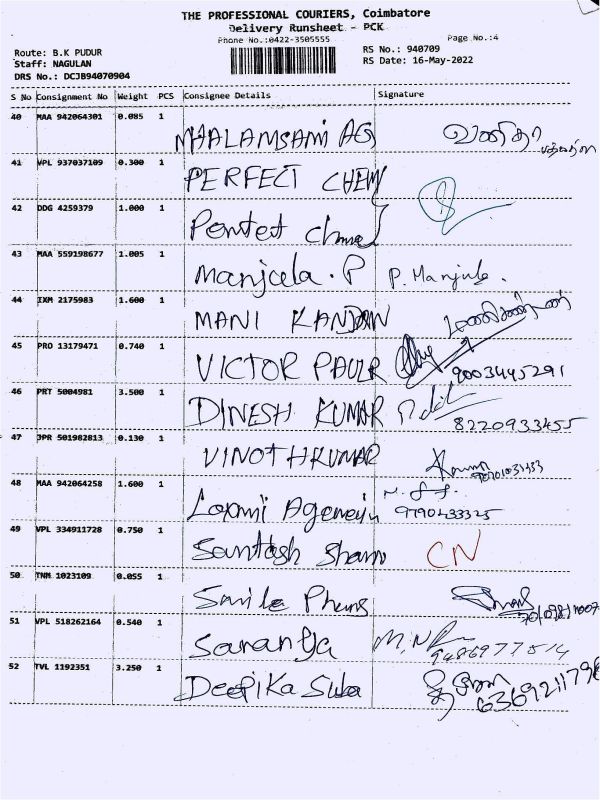 THE PROFESSIONAL COURIERS, Coimbatore
Delivery Runsheet - PCK
Phone No.:0422-3505555
Page No.:4
Route: B.K PUDUR
RS No.: 940709
Staff: NAGULAN
RS Date: 16-May-2022
DRS No.: DCJB94070904
S No Consignment No Weight PCS Consignee Details Signature
40 MAA 942064301 0.085 1 வனிதா
41 VPL 937037109 0.300 1 PERFECT CHEM
42 DDG 4259379 1.000 1
43 MAA 559198677 1.005 1 Manjula . P P. Manjula .
44 IXM 2175983 1.600 1 MANI KANDAN மணிகண்டன்
45 PRO 13179471 0.740 1 VICTOR PAULR 9003445291
46 PRT 5004981 3.500 1 DINESH KUMAR 8220933455
47 JPR 501982813 0.130 1 VINOTHKUMAR
48 MAA 942064258 1.600 1 Laxmi 9790433325
49 VPL 334911728 0.750 1 Santosh Sharn CN
50 TNM 1023109 0.055 1 Smile
51 VPL 518262164 0.540 1 Saranya 9486977514
52 TVL 1192351 3.250 1 Deepika Suba